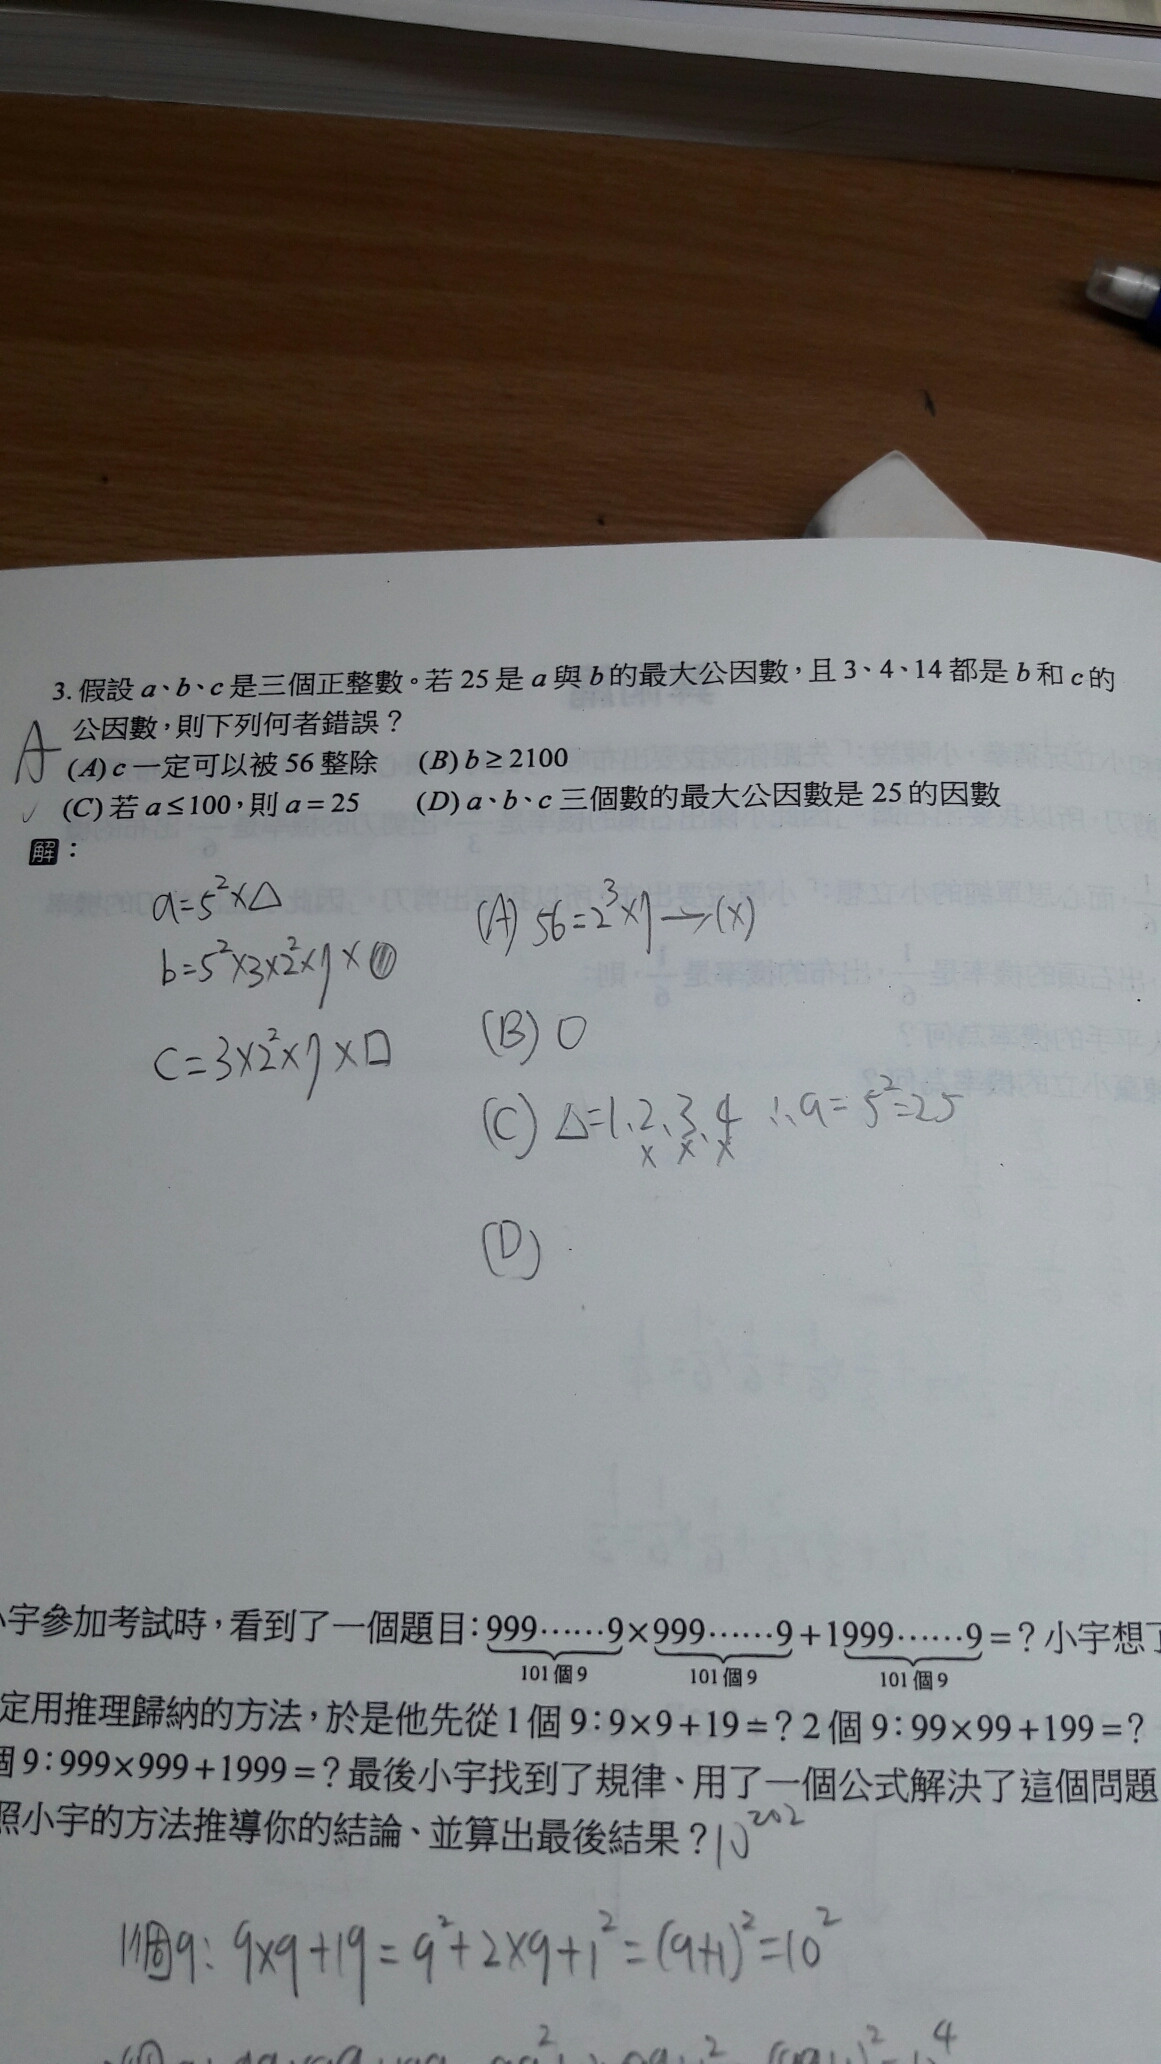 3. 假設 a、b、c 是三個正整數。若 25 是 a 與 b 的最大公因數，且 3、4、14 都是 b 和 c 的
A 公因數，則下列何者錯誤？
(A) c 一定可以被 56 整除 (B) b ≥ 2100
✓ (C) 若 a ≤ 100，則 a = 25 (D) a、b、c 三個數的最大公因數是 25 的因數
解：
a=5²×△
b=5²×3×2²×7×
c=3×2²×7×□
(A) 56=2³×7→(×)
(B) O
(C) △=1、2、3、4 ∴a=5²=25
× × ×
(D)
小宇參加考試時，看到了一個題目：999……9×999……9+1999……9=？小宇想了
101 個 9 101 個 9 101 個 9
定用推理歸納的方法，於是他先從 1 個 9：9×9+19=？2 個 9：99×99+199=？
個 9：999×999+1999=？最後小宇找到了規律、用了一個公式解決了這個問題
照小宇的方法推導你的結論、並算出最後結果？10²⁰²
1個9：9×9+19=9²+2×9+1²=(9+1)²=10²